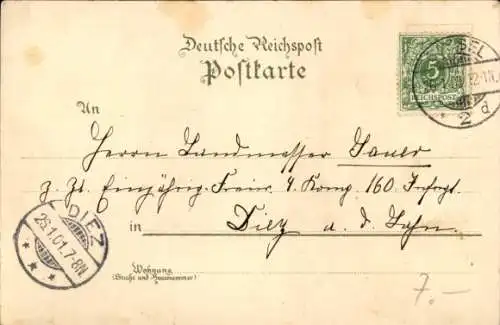 Deutsche Reichspost
Postkarte
5
REICHSPOST
SEL
12-1N.
2 d
An
Herrn Landmesser Sauer
z. Zt. Einjährig-Freiw. 4 Komp. 160. Infrgt.
in Diez a. d. Lahn.
DIEZ
26.1.01.7-8N.
* * *
Wohnung
(Straße und Hausnummer)
7.-